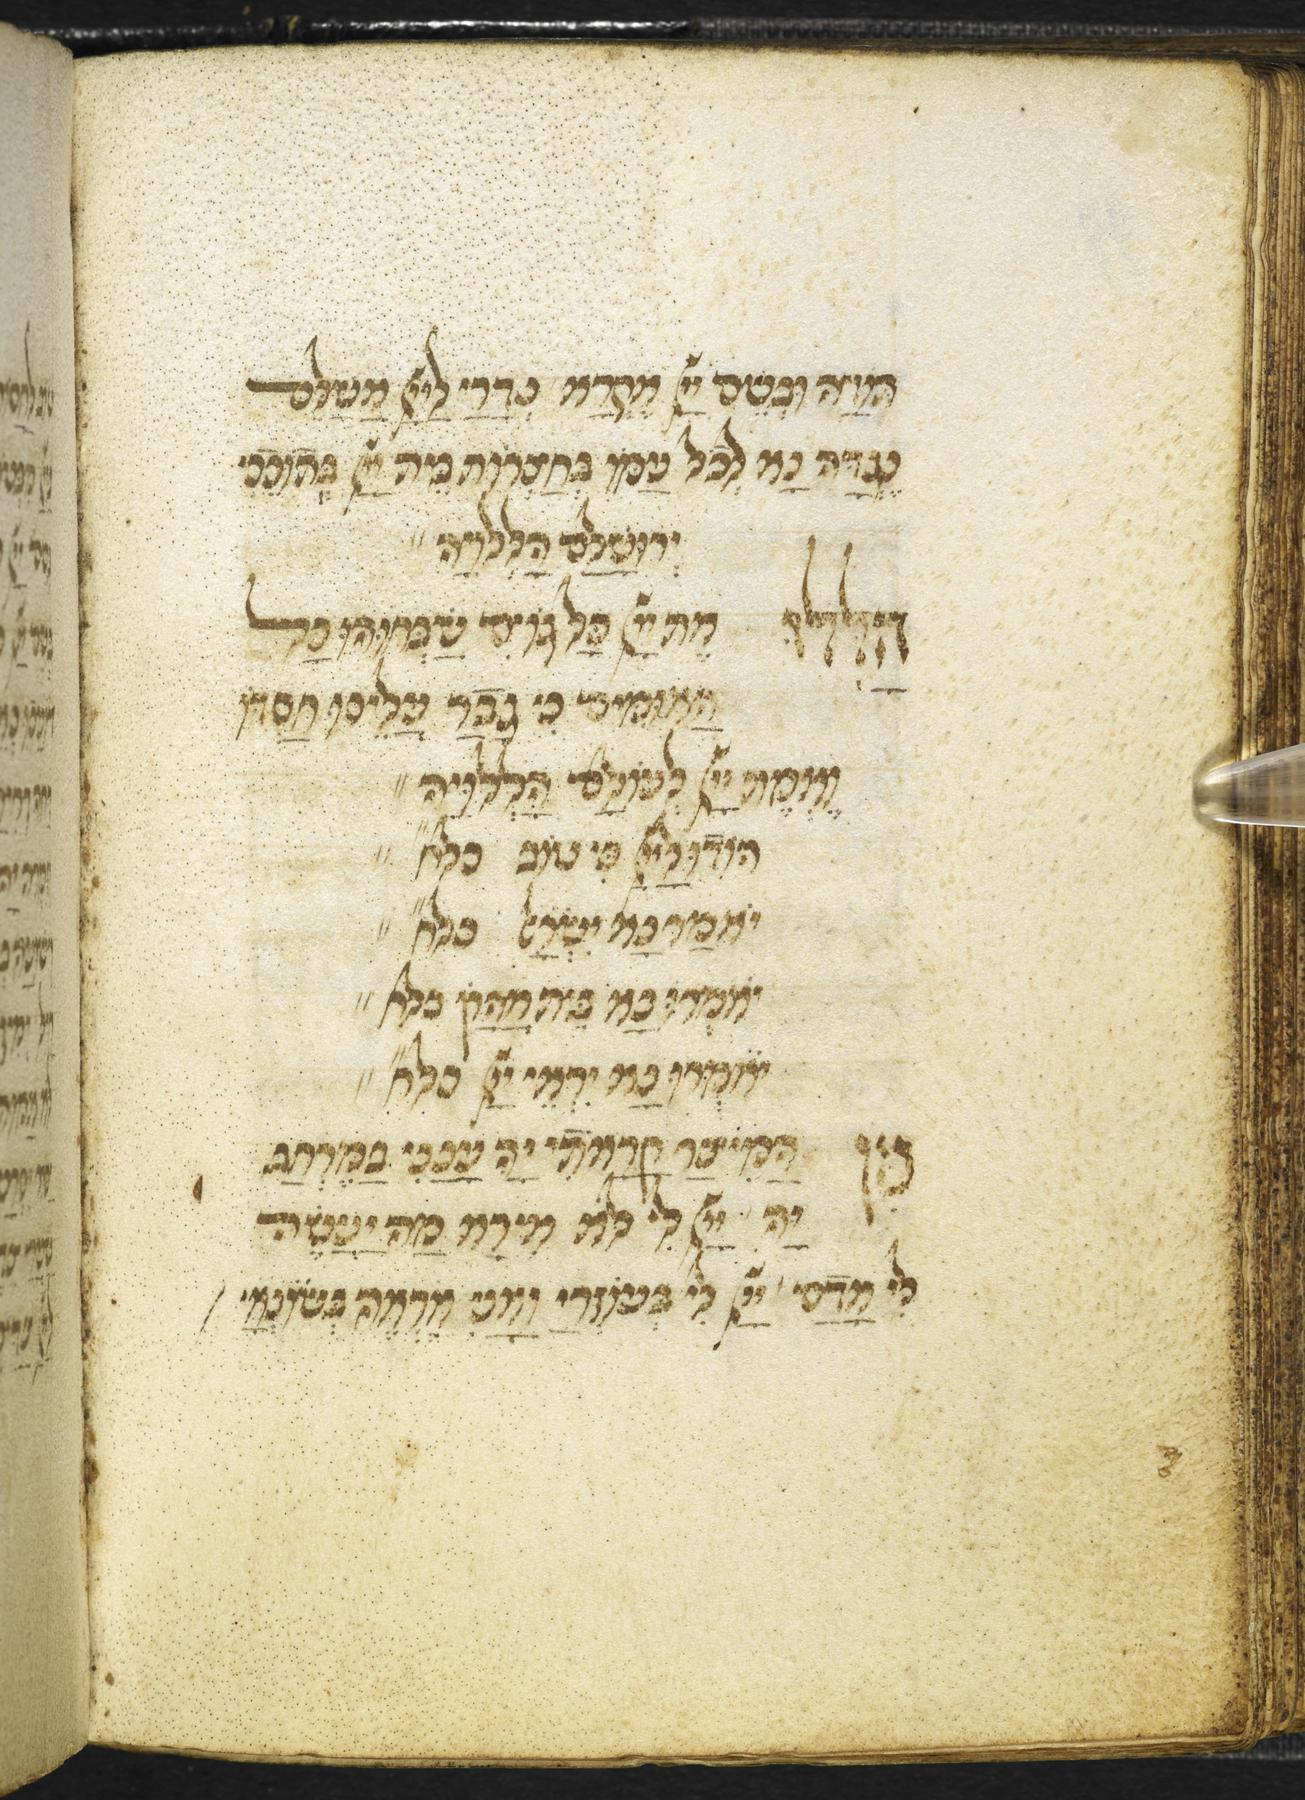 תודה ובשם יי אקרא נדרי ליי אשלם
נגדה נא לכל עמו בחצרות בית יי בתוככי
ירושלם הללויה
הללו את יי כל גוים שבחוהו כל
האומים כי גבר עלינו חסדו
ואמת יי לעולם הללויה
הודו ליי כי טוב כלח
יאמר נא ישראל כלח
יאמרו נא בית אהרן כלח
יאמרו נא יראי יי כלח
מן המיצר קראתי יה ענני במרחב
יה יי לי לא אירא מה יעשה
לי אדם יי לי בעוזרי ואני אראה בשונאי